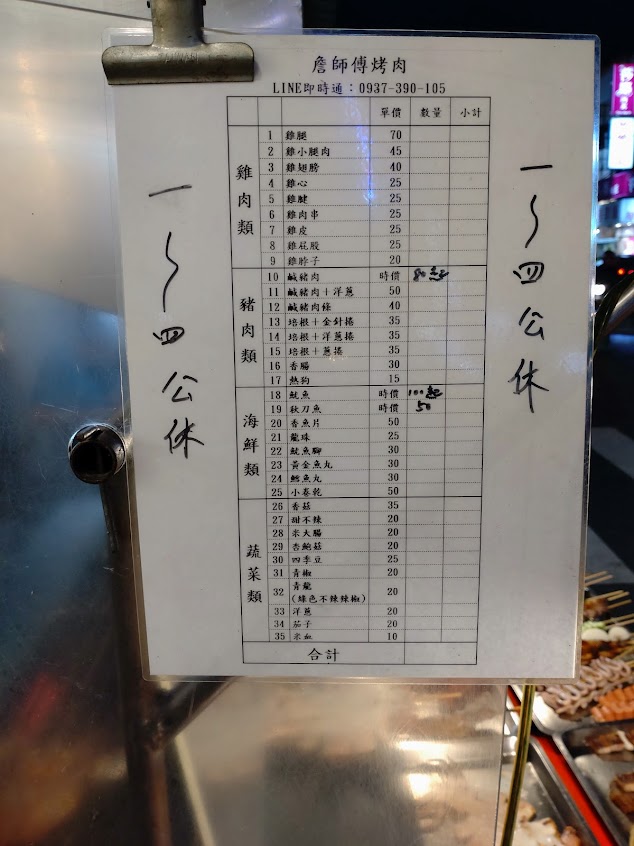 TAIWAN
詹師傅烤肉
LINE即時通：0937-390-105
單價 數量 小計
雞肉類
1 雞腿 70
2 雞小腿肉 45
3 雞翅膀 40
4 雞心 25
5 雞腱 25
6 雞肉串 25
7 雞皮 25
8 雞屁股 25
9 雞脖子 20
豬肉類
10 鹹豬肉 時價 80起
11 鹹豬肉＋洋蔥 50
12 鹹豬肉條 40
13 培根＋金針捲 35
14 培根＋洋蔥捲 35
15 培根＋蔥捲 35
16 香腸 30
17 熱狗 15
海鮮類
18 魷魚 時價 100起
19 秋刀魚 時價 50
20 香魚片 50
21 龍珠 25
22 魷魚腳 30
23 黃金魚丸 30
24 鱈魚丸 30
25 小卷乾 50
蔬菜類
26 香菇 35
27 甜不辣 20
28 米大腸 20
29 杏鮑菇 20
30 四季豆 25
31 青椒 20
32 青龍 20
(綠色不辣辣椒)
33 洋蔥 20
34 茄子 20
35 米血 10
合計
一～四公休
一～四公休